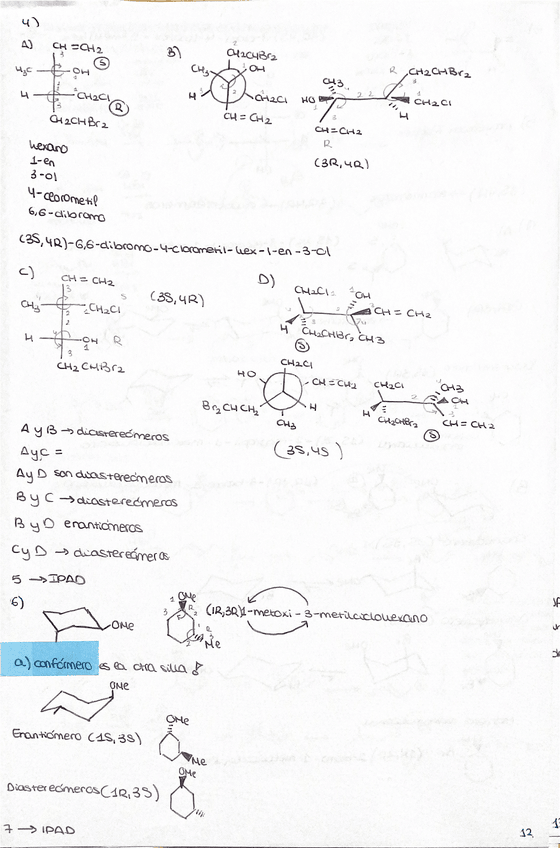 4)
A) CH=CH₂
H₃C OH (S)
H CH₂Cl (R)
CH₂CHBr₂
B) CH₂CHBr₂
CH₃ OH
H CH₂Cl
CH=CH₂
CH₃ R CH₂CHBr₂
HO CH₂Cl
H
CH=CH₂
R
(3R,4R)
hexano
1-en
3-ol
4-clorometil
6,6-dibromo
(3S,4R)-6,6-dibromo-4-clorometil-hex-1-en-3-ol
C) CH=CH₂
CH₃ CH₂Cl S
H OH R
CH₂CHBr₂
(3S,4R)
D) CH₂Cl OH
CH=CH₂
H CH₂CHBr₂ CH₃
(S)
CH₂Cl
HO CH=CH₂
Br₂CHCH₂ H
CH₃
CH₂Cl CH₃
OH
H CH₂CHBr₂ CH=CH₂
(S)
(3S,4S)
A y B → diastereómeros
A y C =
A y D son diastereómeros
B y C → diastereómeros
B y D enantiómeros
C y D → diastereómeros
5 → IPAD
6)
OMe
OMe
Me
(1R,3R)1-metoxi-3-metilciclohexano
a) confórmero es la otra silla
OMe
Enantiómero (1S,3S)
OMe
Me
Diastereómeros (1R,3S)
OMe
7 → IPAD
12